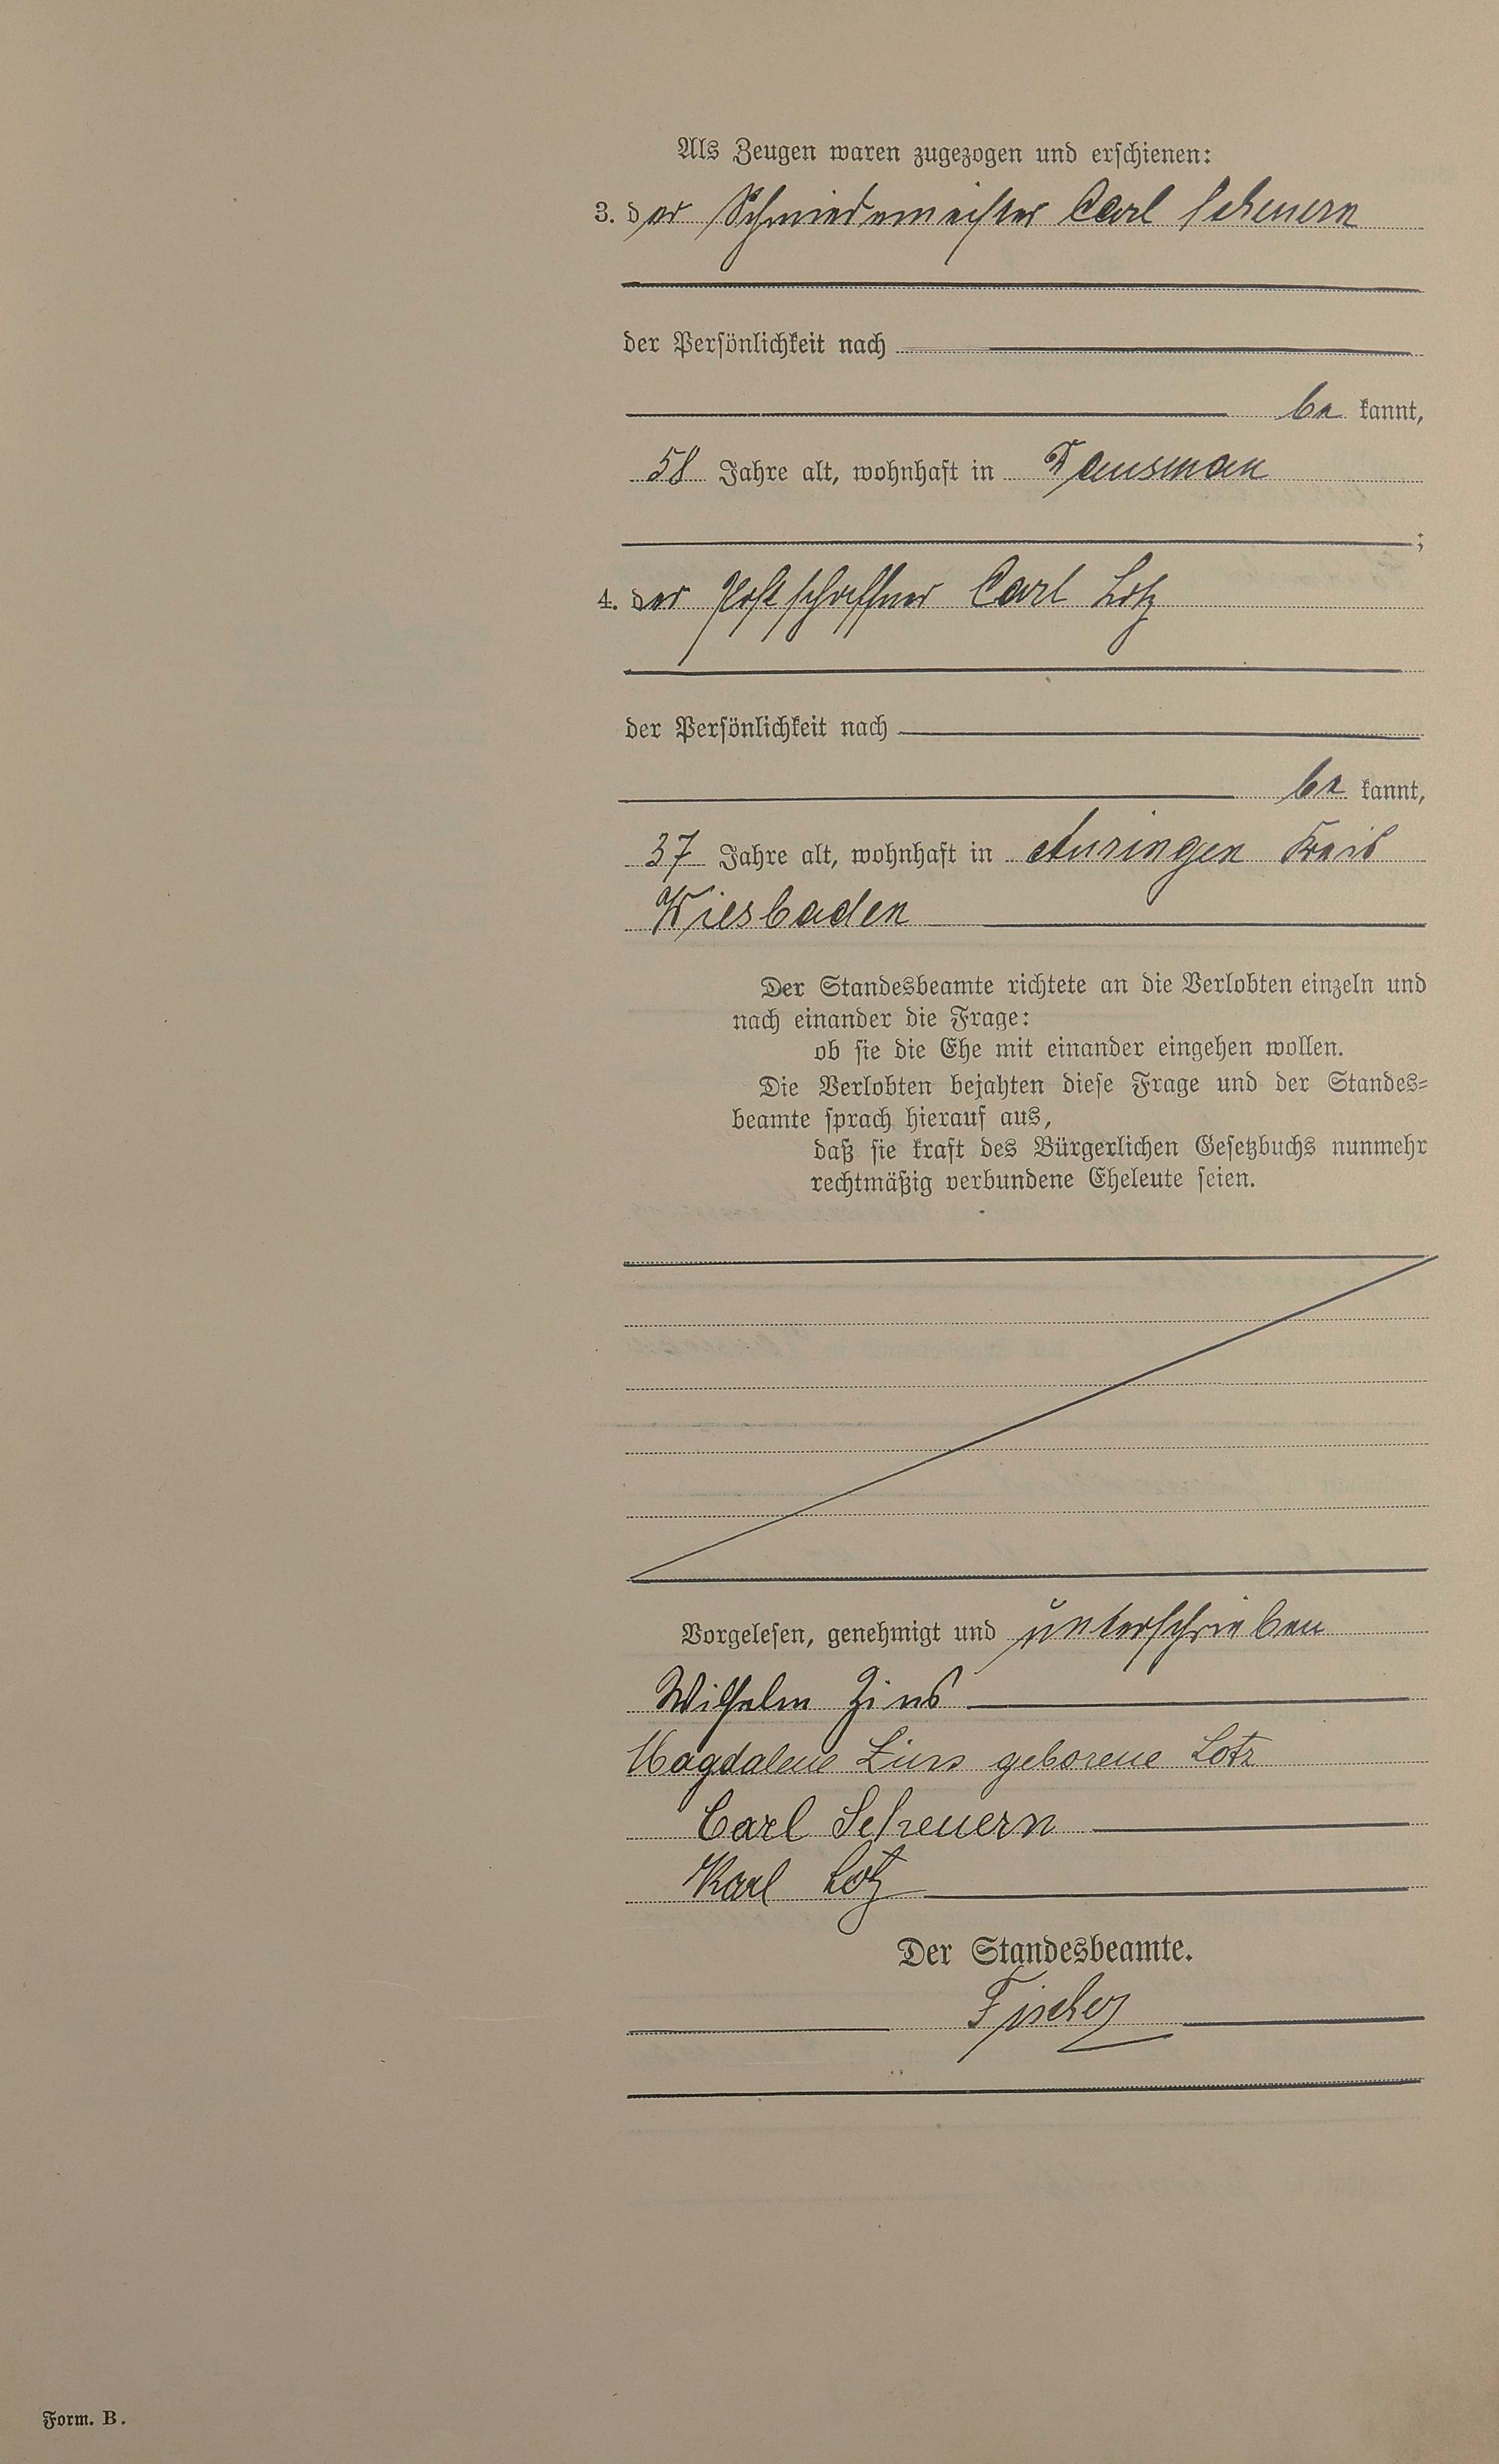 Als Zeugen waren zugezogen und erschienen:
3. der Schmiedemeister Carl Scheuern
der Persönlichkeit nach
be kannt,
58 Jahre alt, wohnhaft in
;
4. der Postschaffner Carl Lotz
der Persönlichkeit nach
be kannt,
37 Jahre alt, wohnhaft in Auringen Kreis
Wiesbaden
Der Standesbeamte richtete an die Verlobten einzeln und
nach einander die Frage:
ob sie die Ehe mit einander eingehen wollen.
Die Verlobten bejahten diese Frage und der Standes=
beamte sprach hierauf aus,
daß sie kraft des Bürgerlichen Gesetzbuchs nunmehr
rechtmäßig verbundene Eheleute seien.
Vorgelesen, genehmigt und unterschrieben
Wilhelm Zins
Magdalene Zins geborene Lotz
Carl Scheuern
Karl Lotz
Der Standesbeamte.
Fischer
Form. B.